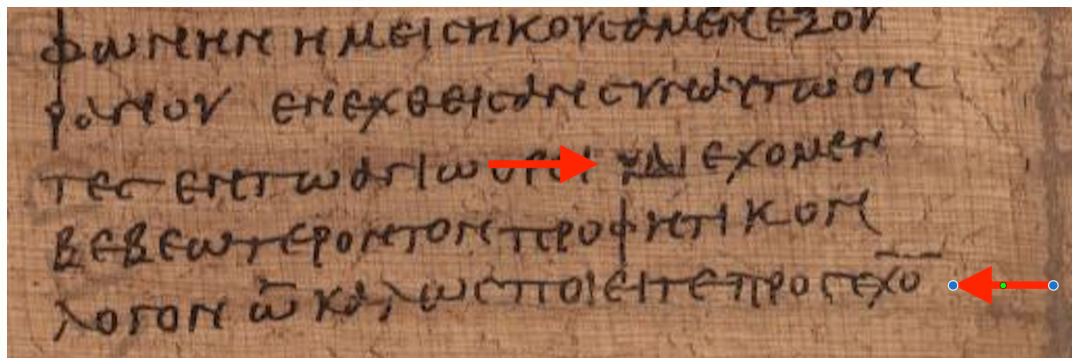 φωνην ημεις ηκουσαμεν εξ ου
ρανου ενεχθεισαν συν αυτω ον
τες εν τω αγιω ορει και εχομεν
βεβεωτερον τον προφητικον
λογον ω καλως ποιειτε προσεχο̅